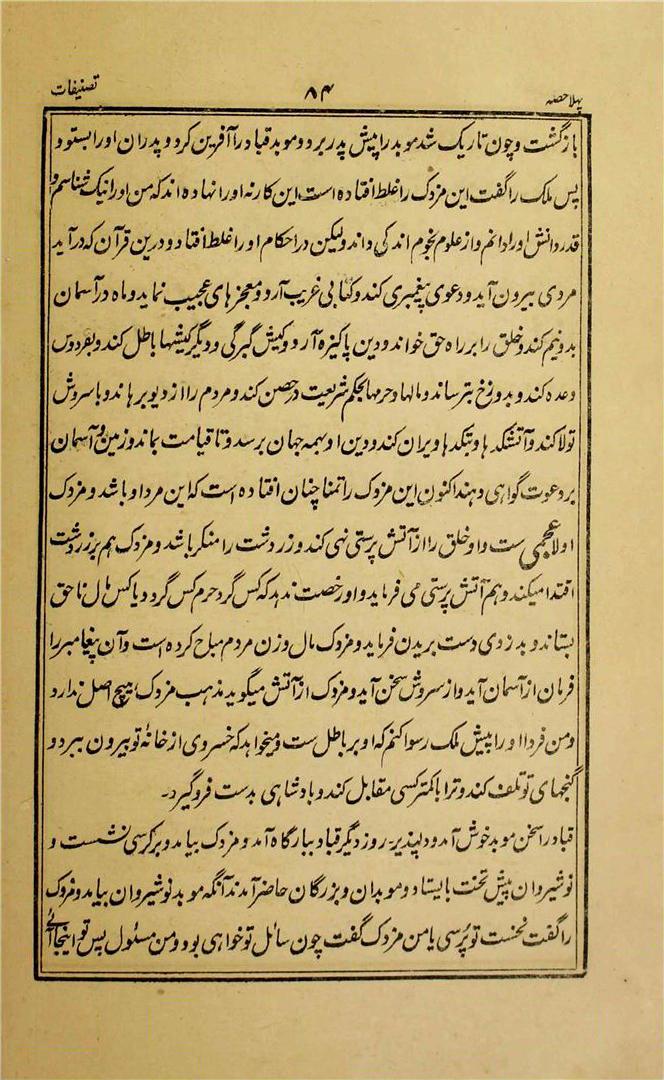 پہلا حصہ ۸۴ تصنیفات
بازگشت و چون تاریک شد موبد را پیش پدر برد و موبد قباد را آفرین کرد و پدران او را بستود و
پس ملک را گفت این مزدک را غلط افتاده است این کار نه او را نهاده اند که من او را نیک شناسم و
قدر دانش او را دانم و از علوم نجوم اندکی داند ولیکن در احکام او را غلط افتاد و درین قرآن که در آید
مردی بیرون آید و دعوی پیغمبری کند و کتابی غریب آرد و معجزهای عجیب نماید و ماه در آسمان
بدو نیم کند و خلق را بر راه حق خواند و دین پاکیزه آرد و کیش گبرگی و دیگر کیشها باطل کند و بفردوس
وعده کند و بدوزخ بترساند و مالها و حرمها بحکم شریعت در حصن کند و مردم را از دیو برهاند و با سروش
تولا کند و آتشکدها و بتکدها ویران کند و دین او بہمہ جہان برسد و تا قیامت بماند و زمین و آسمان
بر دعوت گواہی دہند اکنون این مزدک را تمنا چنان افتاده است که این مرد او باشد و مزدک
اولا عجمی ست و او خلق را از آتش پرستی نہی کند و زردشت را منکر باشد و مزدک ہم بر زردشت
اقتدا میکند و ہم آتش پرستی می فرماید و او رخصت ندہد که کس گرد حرم کس گردد یا کس مال ناحق
بستاند و بدزدی دست بریدن فرماید و مزدک مال و زن مردم مباح کرده است و آن پیغامبر را
فرمان از آسمان آید و از سروش سخن آید و مزدک از آتش میگوید مذہب مزدک ہیچ اصل ندارد
و من فردا او را پیش ملک رسوا کنم که او بر باطل ست و میخواہد که خسروی از خانۂ تو بیرون ببرد و
گنجہای تو تلف کند و ترا با کمتر کسی مقابل کند و بادشاہی بدست فرو گیرد۔
قباد را سخن موبد خوش آمد و دلپذیر۔ روز دیگر قباد ببارگاہ آمد و مزدک بیامد و بر کرسی نشست و
نوشیروان پیش تخت بایستاد و موبدان و بزرگان حاضر آمدند آنگہ موبد نوشیروان بیامد و مزدک
را گفت نخست تو پرسی یا من مزدک گفت چون سائل تو خواہی بود و من مسئول پس تو اینجا آئے